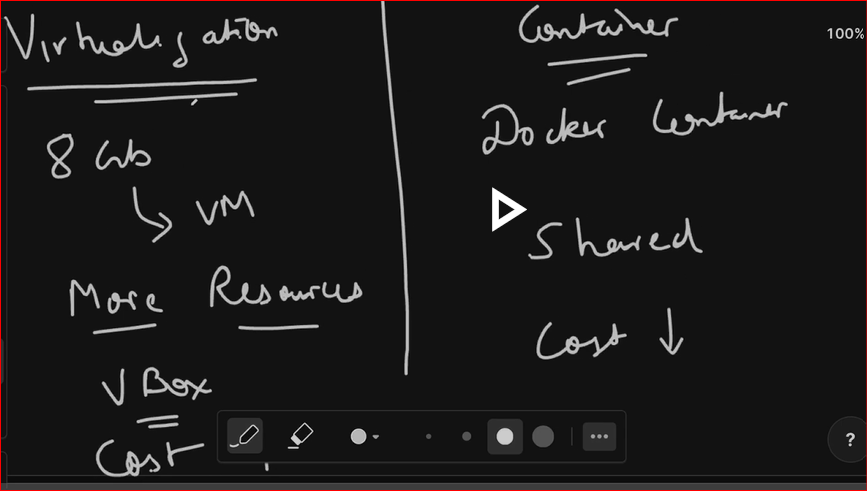 Virtualization
8 Gb
VM
More Resources
V Box
Cost
Container
Docker Container
Shared
Cost ↓
100%
?